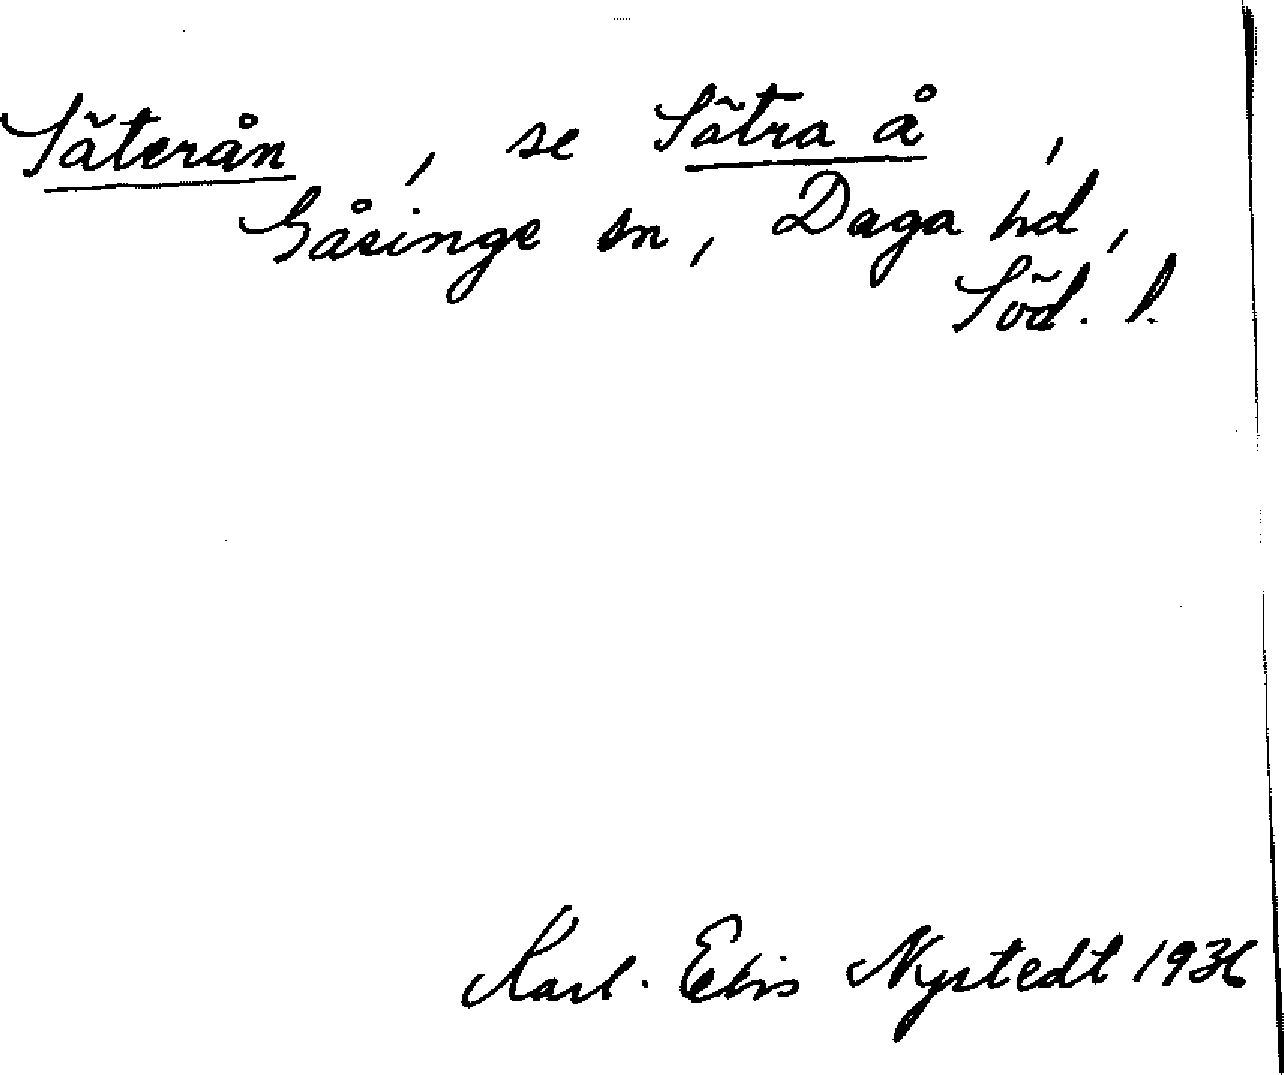 Säterån, se Sätra å,
Gåsinge sn, Daga hd,
Söd. l.
Karl. Ebis Nystedt 1936